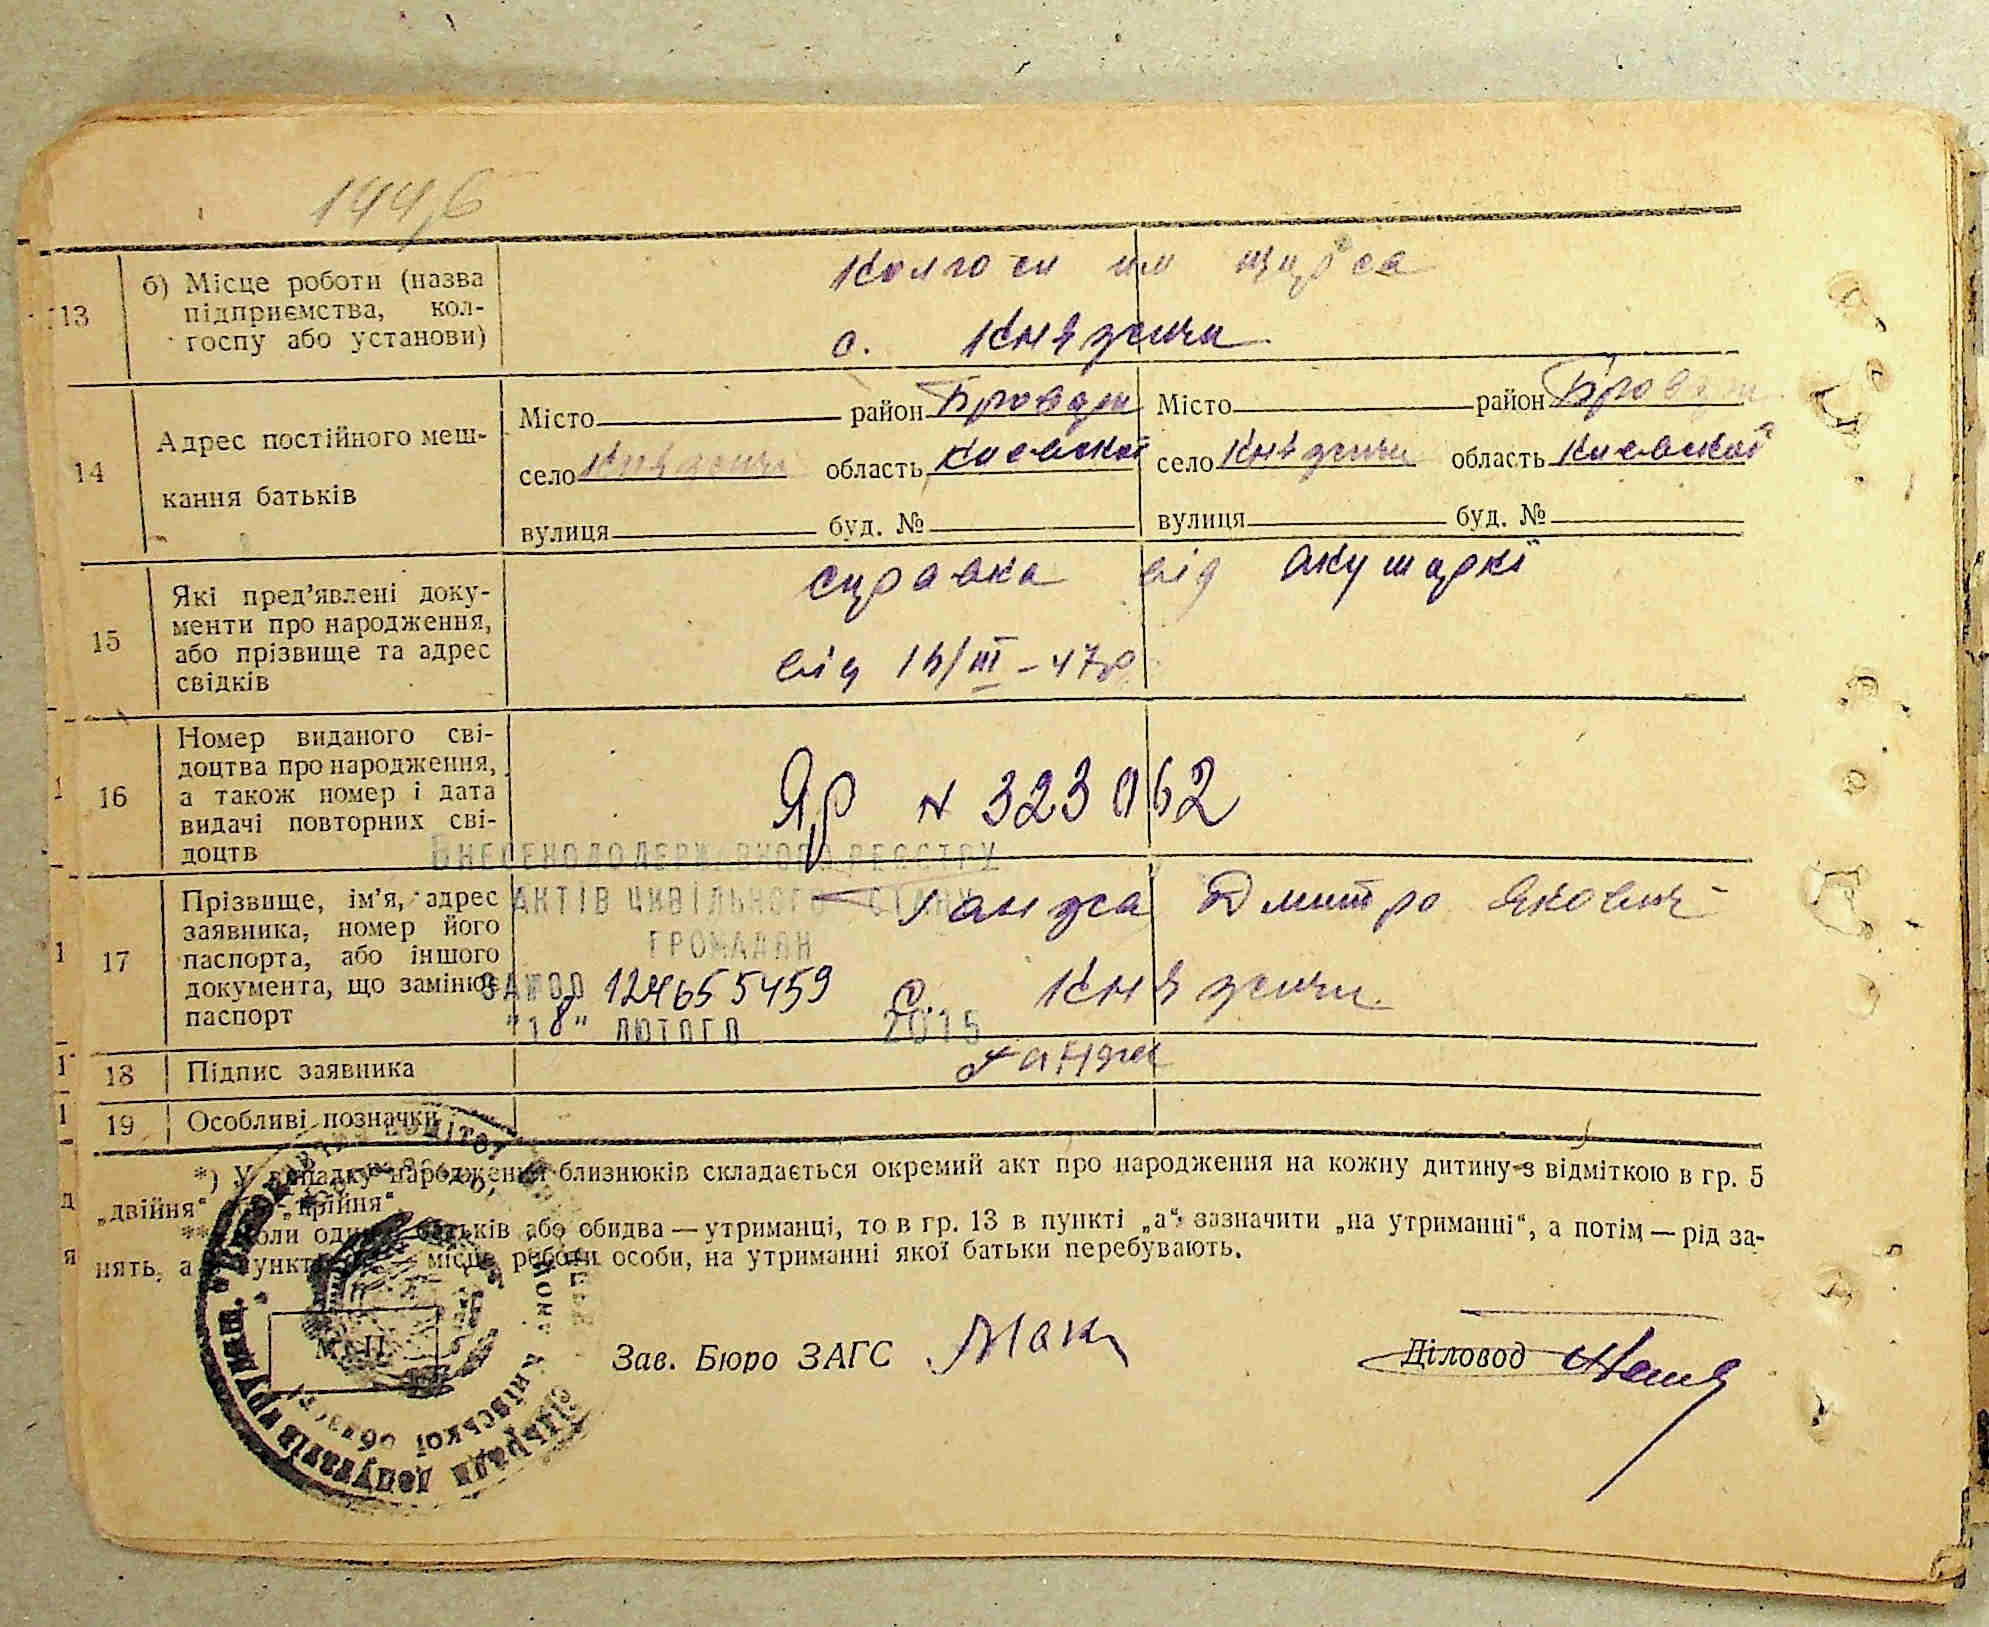 1946
13
б) Місце роботи (назва
підприємства, кол-
госпу або установи)
Колгосп им Щорса
с. Княжичи
14
Адрес постійного меш-
кання батьків
Місто район Бровари
село Княжичи область Киевской
вулиця буд. №
Місто район Бровари
село Княжичи область Киевской
вулиця буд. №
15
Які пред’явлені доку-
менти про народження,
або прізвище та адрес
свідків
справка від акушаркі
від /ІІІ-47р
16
Номер виданого сві-
доцтва про народження,
а також номер і дата
видачі повторних сві-
доцтв
ЯР № 323062
ВНЕСЕНО ДО ДЕРЖАВНОГО РЕЄСТРУ
АКТІВ ЦИВІЛЬНОГО СТАНУ
ГРОМАДЯН
ЗА №00 124655459
"18" ЛЮТОГО 2015
17
Прізвище, ім’я, адрес
заявника, номер його
паспорта, або іншого
документа, що замінює
паспорт
Ганжа Дмитро Якович
с. Княжичи
18
Підпис заявника
Ганжа
19
Особливі позначки
*) У випадку народження близнюків складається окремий акт про народження на кожну дитину з відміткою в гр. 5
„двійня“ „трійня“.
** Коли один батьків або обидва — утриманці, то в гр. 13 в пункті „а“ зазначити „на утриманні“, а потім — рід за-
нять, а пункті місце роботи особи, на утриманні якої батьки перебувають.
М. П.
депутатів трудящ.
Київської області
Зав. Бюро ЗАГС
Діловод